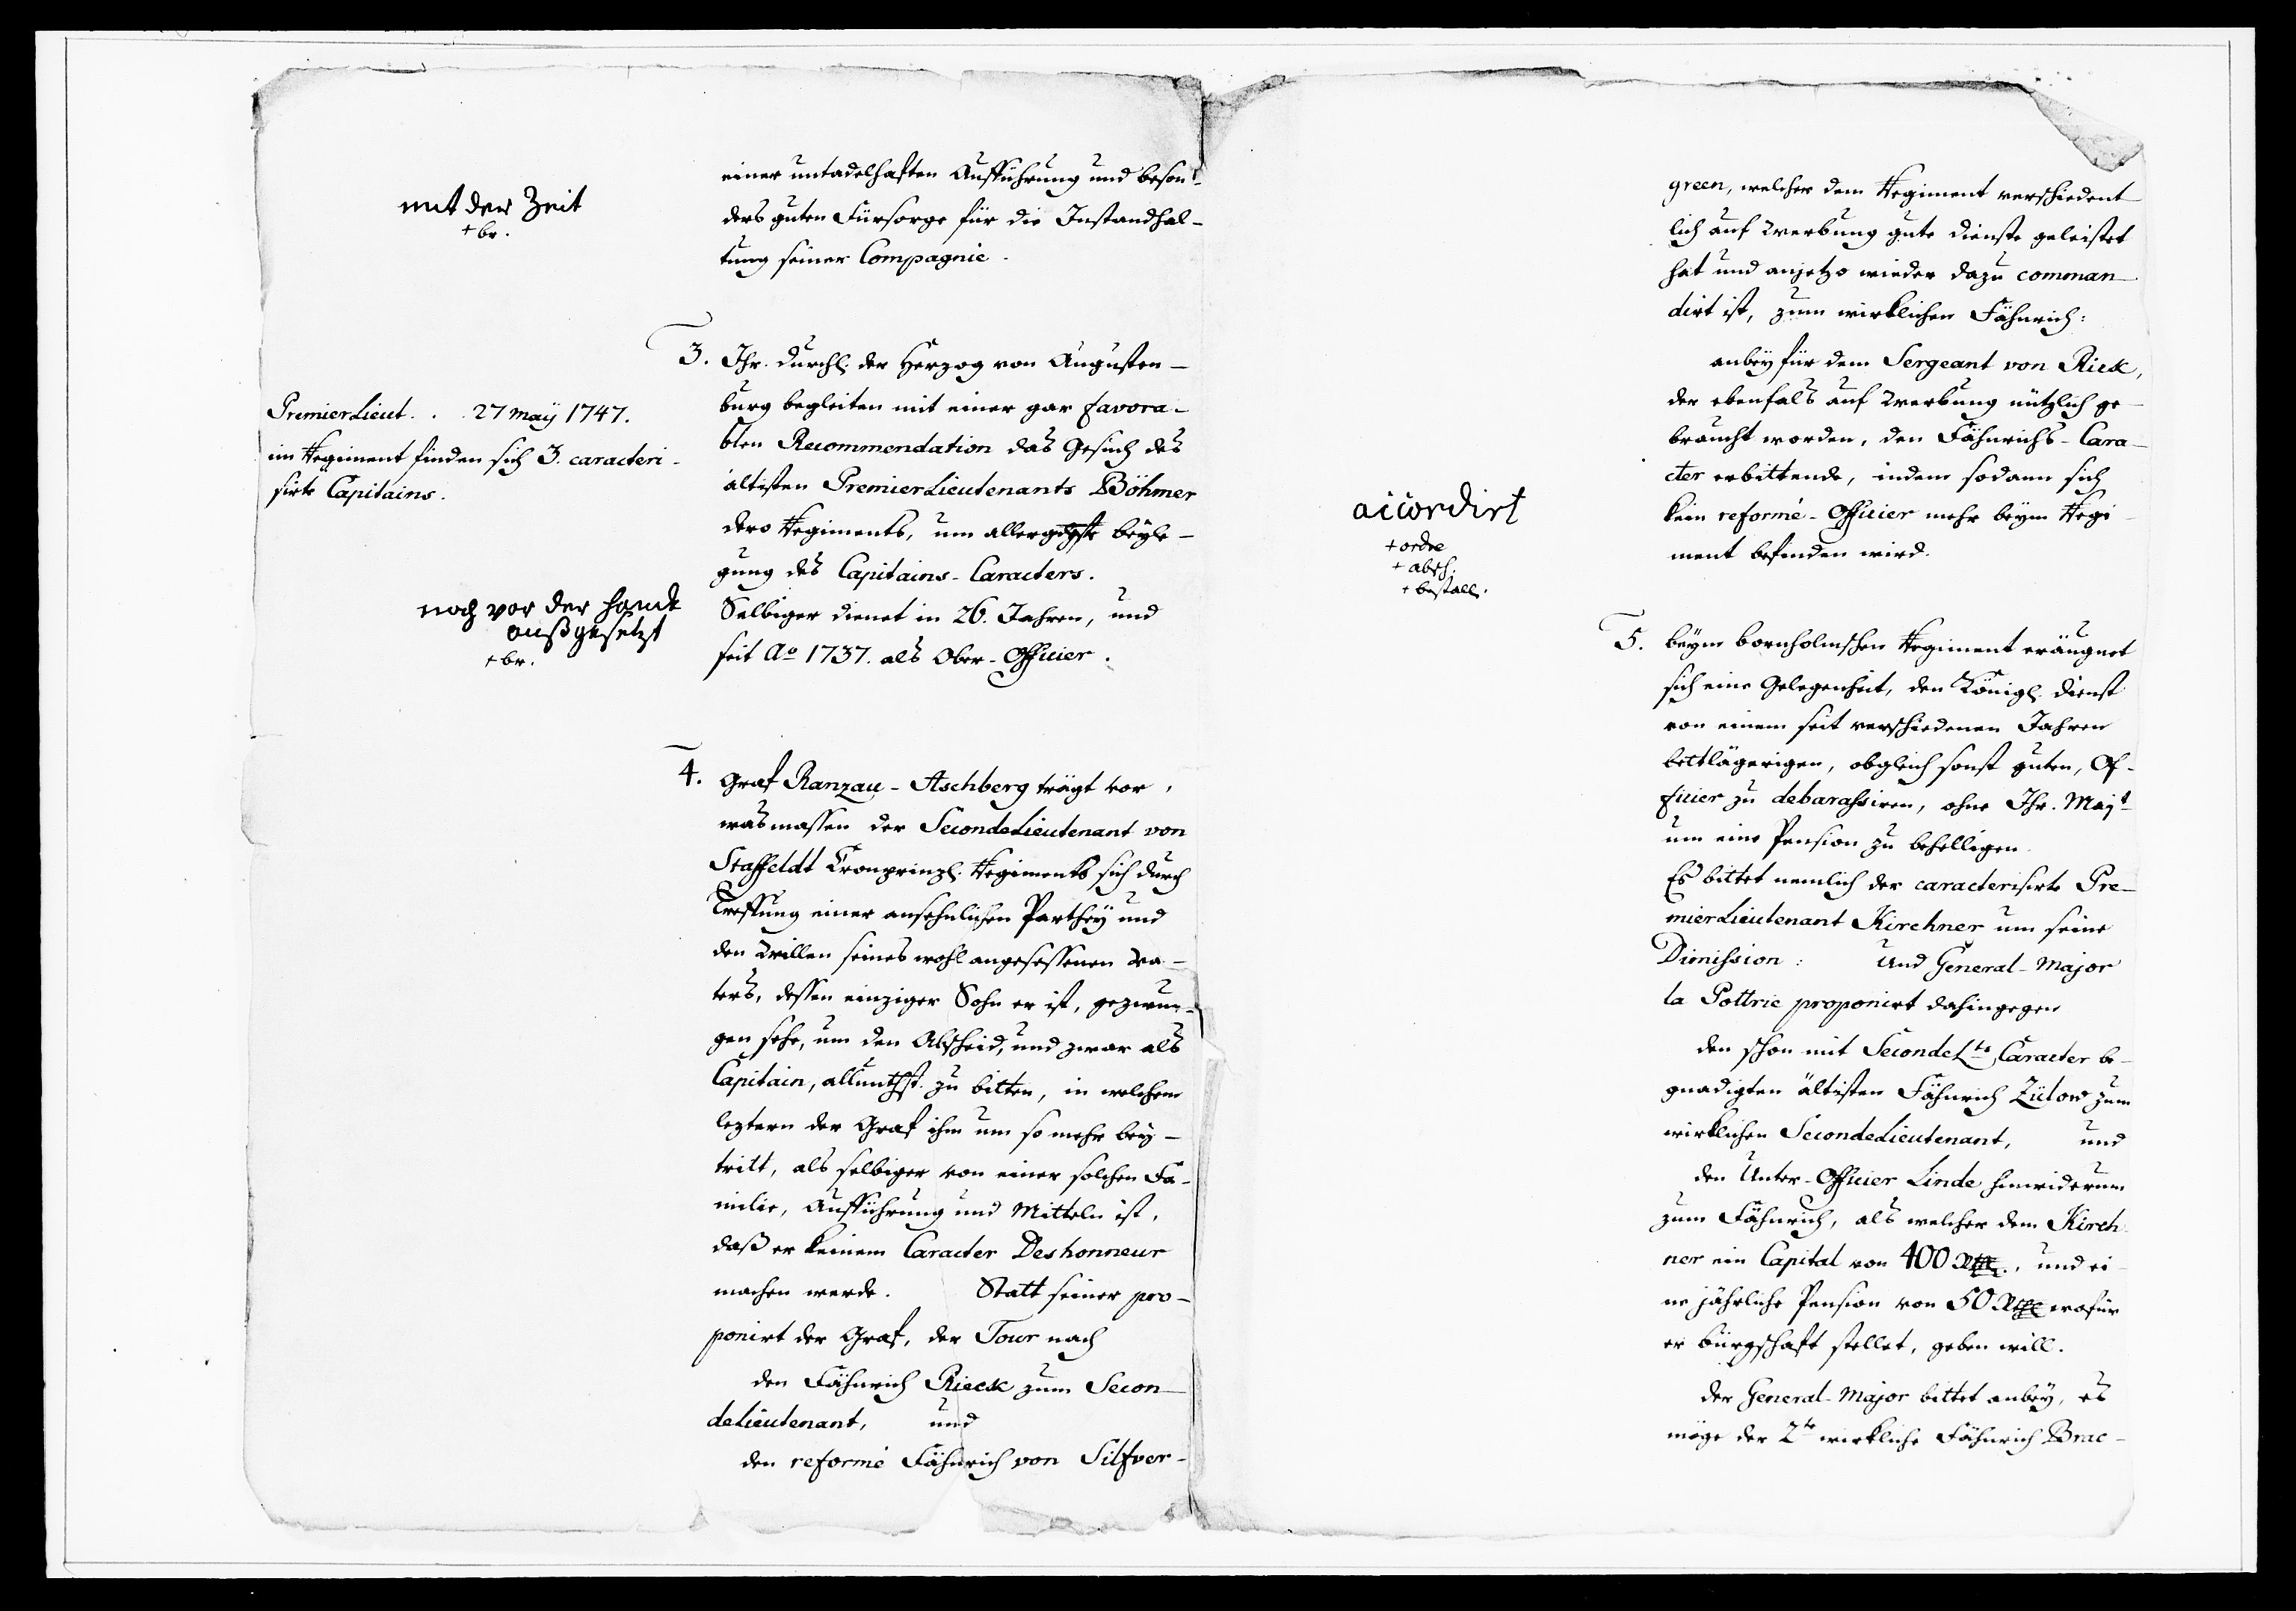 einer untadelhaften Aufführung und beson¬
ders guten Fürsorge für die Instandhal¬
tung seiner Compagnie.
mit der Zeit
+ br.
3. Ihr. Durchl. der Herzog von Augusten¬
burg begleiten mit einer gar favora¬
blen Recommendation das Gesuch des
ältisten PremierLieutenants Böhmer
dero Regiments, um allergdste beyle¬
gung des Capitains-Caracters.
Selbiger dienet in 26. Jahren, und
seit Ao 1737. als Ober-Officier.
PremierLieut. . . 27 maij 1747.
im Regiment finden sich 3. caracteri¬
sirte Capitains.
noch vor der Handt
außgesetzt
+ br.
4. Graf Ranzau-Aschberg trägt vor,
wasmassen der SecondeLieutenant von
Staffeldt Cronprinzl. Regiments sich durch
Treffung einer ansehnlichen Parthey und
den Willen seines wohl angesessenen Va¬
ters, dessen einziger Sohn er ist, gezwun¬
gen sehe, um den Abscheid, und zwar als
Capitain, allunthst. zu bitten, in welchem
leztern der Graf ihm um so mehr bey¬
tritt, als selbiger von einer solchen Fa¬
milie, Aufführung und Mitteln ist,
daß er keinem Caracter Deshonneur
machen werde. Statt seiner pro¬
ponirt der Graf, der Tour nach
den Fähnrich Rieck zum Secon¬
deLieutenant, und
den reformé Fähnrich von Silfver¬
green, welcher dem Regiment verschiedent¬
lich auf Werbung gute dienste geleistet
hat und anjetzo wieder dazu comman¬
dirt ist, zum wirklichen Fähnrich:
anbey für dem Sergeant von Rieck,
der ebenfals auf Werbung nützlich ge¬
braucht worden, den Fähnrichs-Cara¬
cter erbittende, indem sodann sich
kein reformé-Officier mehr beym Regi¬
ment befinden wird.
accordirt
+ ordre
+ absch.
+ bestall.
5. beym bornholmschen Regiment eräugnet
sich eine Gelegenheit, den Königl. dienst
von einem seit verschiedenen Jahren
bettlägerigen, obgleich sonst guten, Of¬
ficier zu debarassiren, ohne Ihr. Majt
um eine Pension zu behelligen.
Es bittet nemlich der caracterisirte Pre¬
mierLieutenant Kirchner um seine
Dimission: Und General-Major
la Pottrie proponirt dahingegen
den schon mit SecondeLts Caracter be¬
gnadigten ältisten Fähnrich Zülow zum
wirklichen SecondeLieutenant, und
den Unter-Officier Linde hinwiderum
zum Fähnrich, als welcher dem Kirch¬
ner ein Capital von 400 Rthl., und ei¬
ne jährliche Pension von 50 Rthl wofür
er bürgschaft stellet, geben will.
der General-Major bittet anbey, es
möge der 2te wirkliche Fähnrich Brac¬